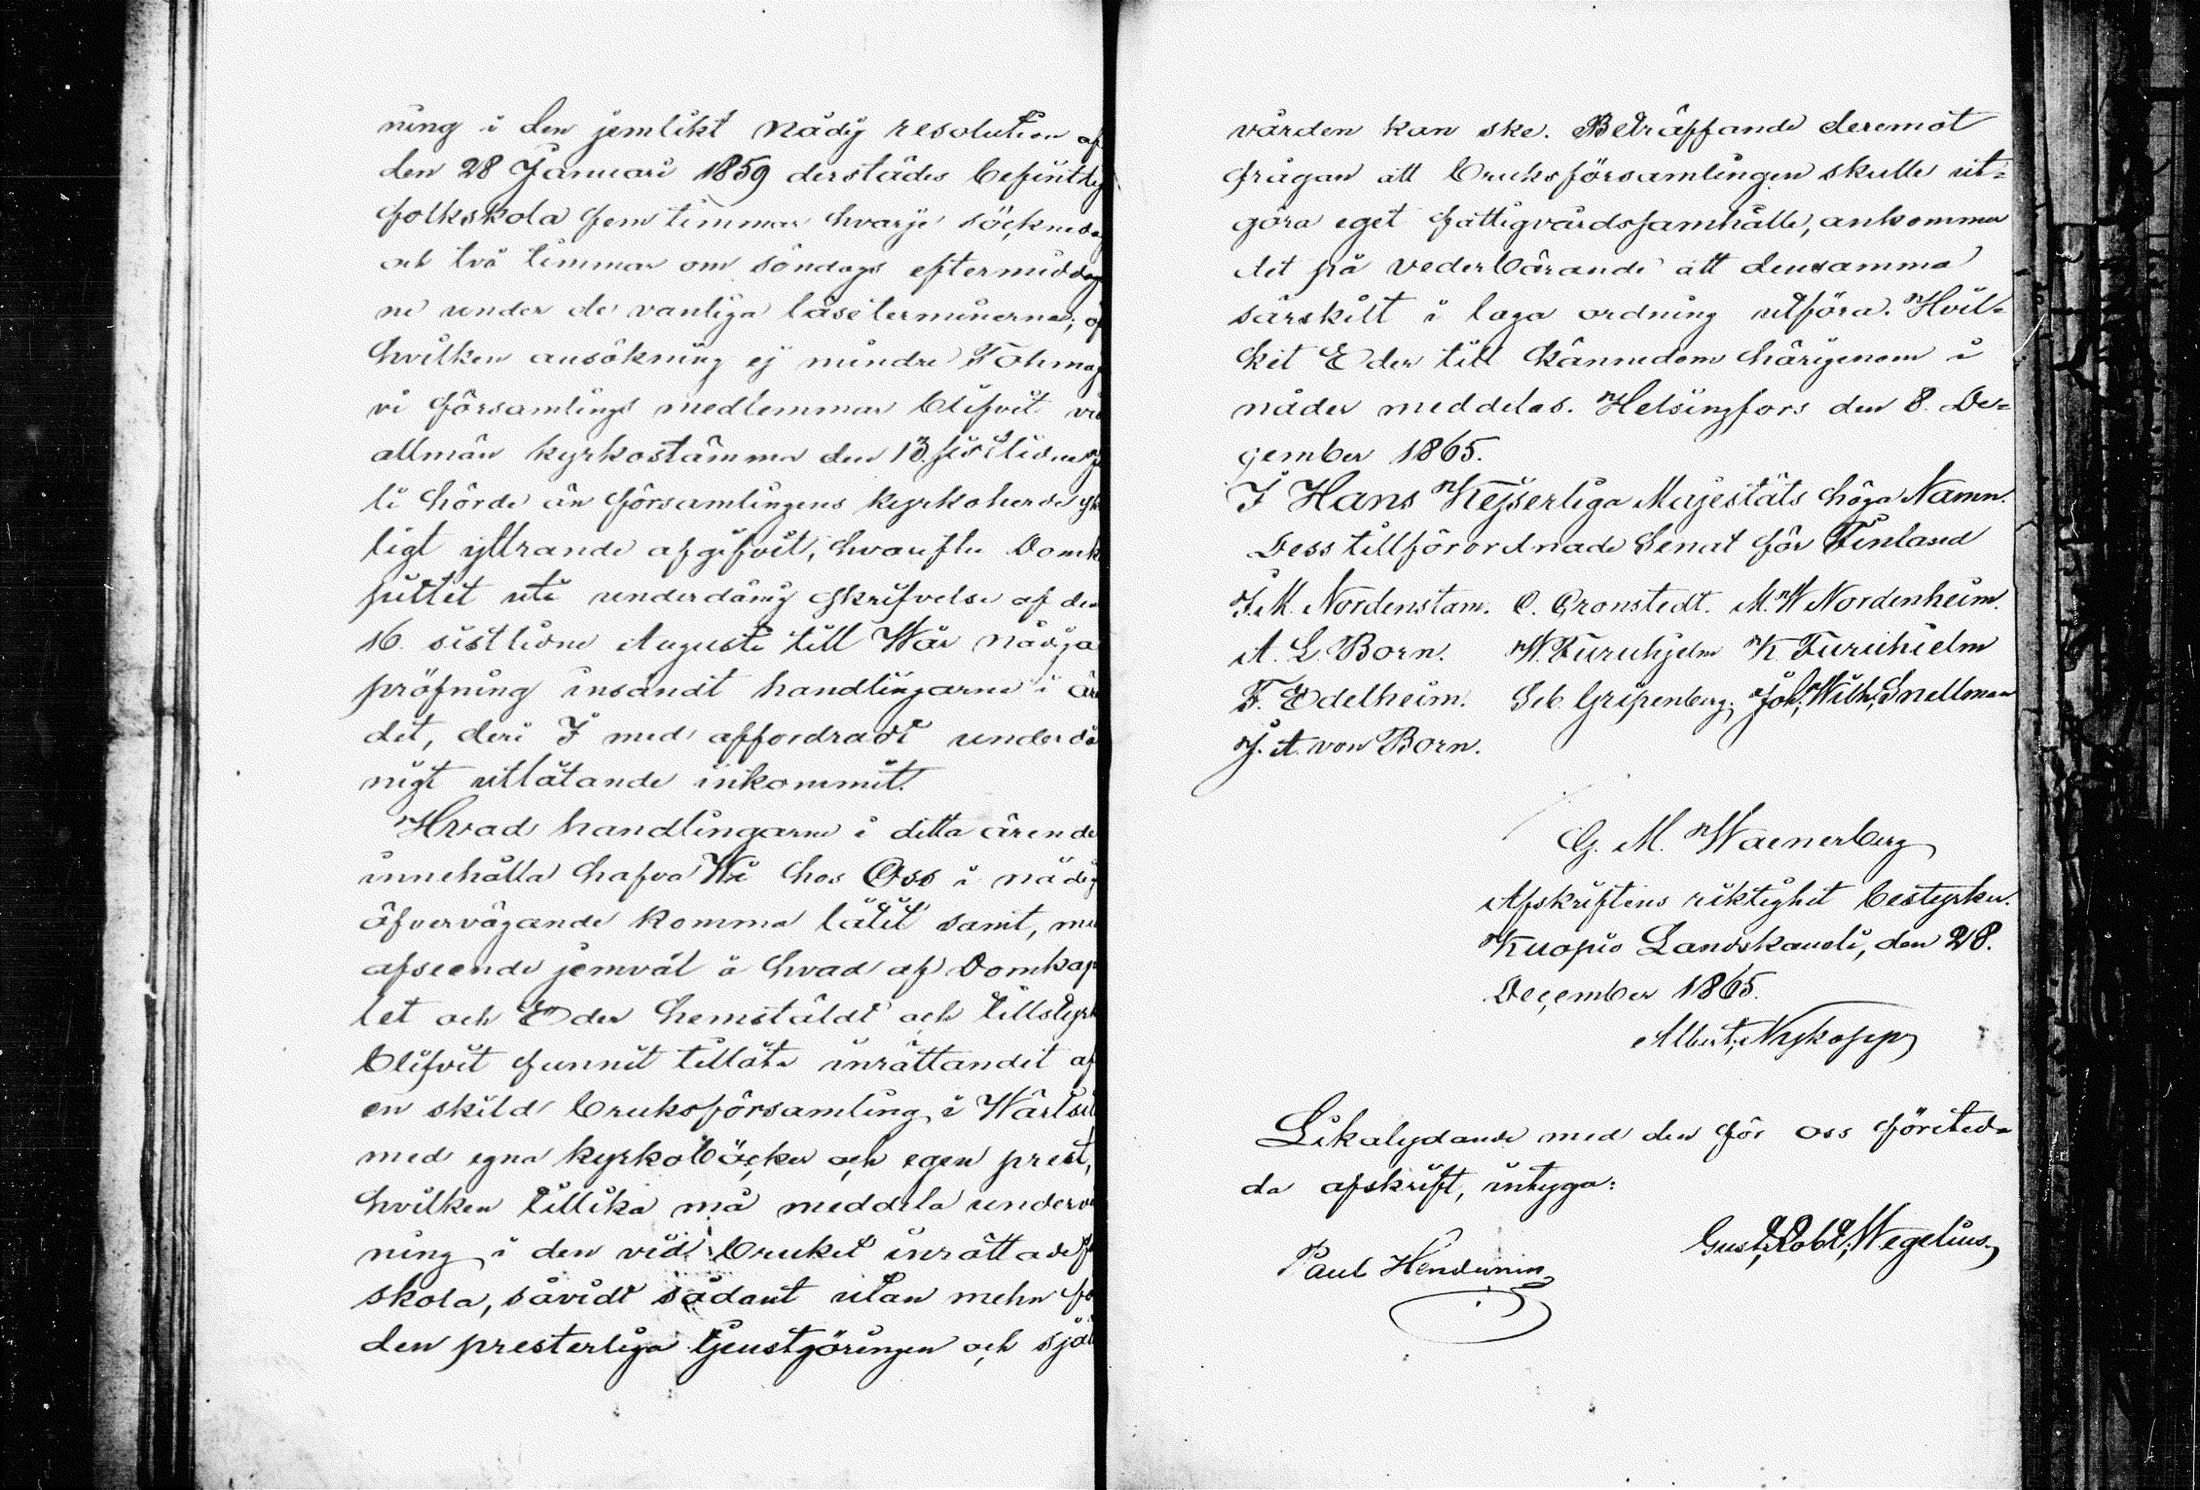 ning i den jemlikt nådig resolution af
den 28 Januari 1859 derstädes befintlig
folkskola fem timmar hvarje söckneda
och två timmar om söndags eftermiddag
ne under de vanliga läseterminerna; öf
hvilken ansökning ej mindre Tohmaj
vi församlings medlemmar blifvit vid
allmän kyrkostämma den 13. sistlidne Ju
li hörde än församlingens kyrkoherde sk
ligt yttrande afgifvit, hvarefter Domk
pitlet uti underdånig skrifvelse af den
16. sistlidne Augusti till Wår nådiga
pröfning insändt handlingarne i ären
det, deri I med affordradt underdå
nigt utlåtande inkommit.
Hvad handlingarne i detta ärende
innehålla hafva Wi hos Oss i nådig
öfvervägande komma låtit samt, med
afseende jemväl å hvad af Domkap
let och Eder hemstäldt och tillstyrk
blifvit funnit tillåta inrättandet af
en skild bruksförsamling i Wärtsil
med egna kyrkoböcker och egen prest,
hvilken tillika må meddela underv
ning i den vid bruket inrättade f
skola, såvidt sådant utan mehn fö
den presterliga tjenstgöringen och själ
vården kan ske. Beträffande deremot
frågan att bruksförsamlingen skulle ut-
göra eget fattigvårdssamhälle, ankommer
det på vederbörande att densamma
särskilt i laga ordning utföra. Hvil-
ket Eder till kännedom härigenom i
nåder meddelas. Helsingfors den 8. De-
cember 1865.
I Hans Kejserliga Majestäts höga Namn.
Dess tillförordnade Senat för Finland
J. M. Nordenstam. O. Cronstedt. M. W Nordenheim.
A. L. Born. W. Furuhjelm K Furuhielm
F. Edelheim. Seb. Gripenberg. Joh. Wilh. Snellman
J. A. von Born.
G. M. Waenerberg
Afskriftens riktighet bestyrker.
Kuopio Landskansli, den 28.
December 1865.
Albert Nykopp
Likalydande med den för oss företed-
da afskrift, intyga:
Gust. Robt. Wegelius.
Paul Hendunin